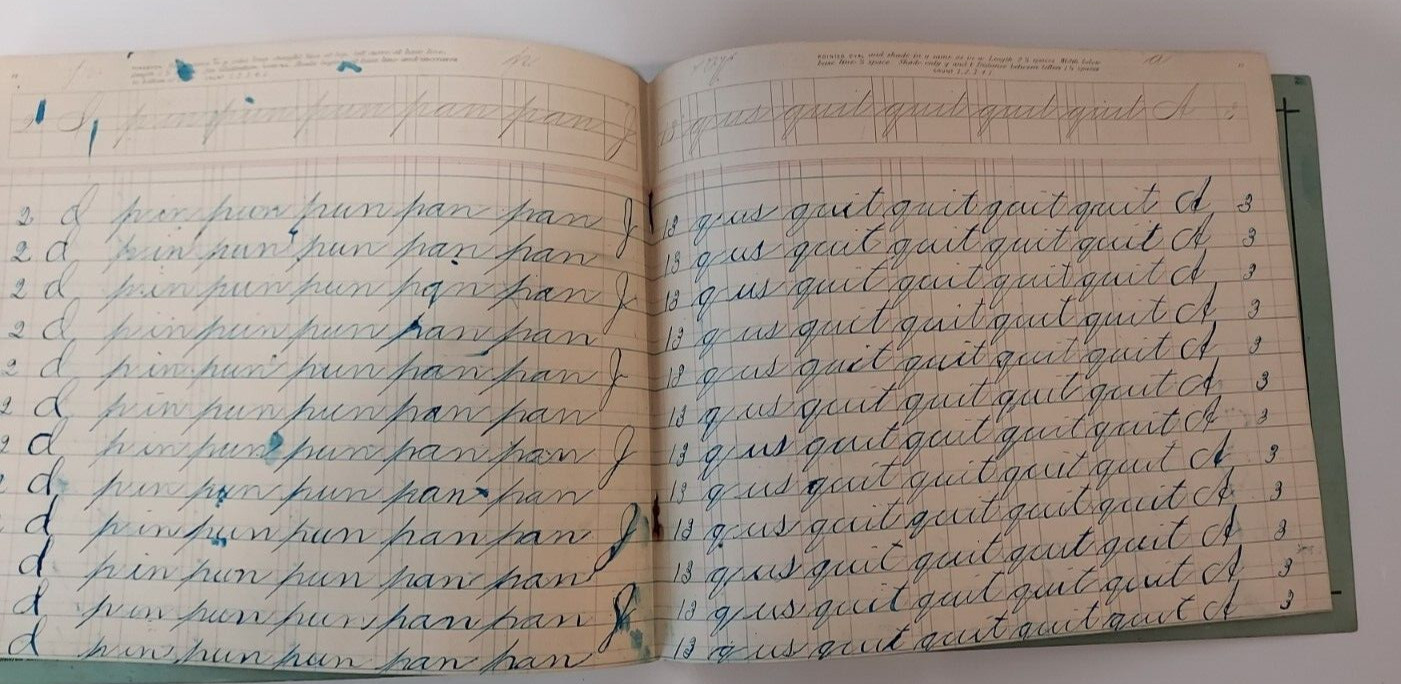 pin pun pun pan pan J
2 d pin pun pun pan pan J
2 d pin pun pun pan pan
2 d pin pun pun pan pan J
2 d pin pun pun pan pan
2 d pin pun pun pan pan J
2 d pin pun pun pan pan
2 d pin pun pun pan pan J
d pin pun pun pan pan
d pin pun pun pan pan J
d pin pun pun pan pan
d pin pun pun pan pan J
d pin pun pun pan pan
13 q us quit quit quit quit A 3
13 q us quit quit quit quit A 3
13 q us quit quit quit quit A 3
13 q us quit quit quit quit A 3
13 q us quit quit quit quit A 3
13 q us quit quit quit quit A 3
13 q us quit quit quit quit A 3
13 q us quit quit quit quit A 3
13 q us quit quit quit quit A 3
13 q us quit quit quit quit A 3
13 q us quit quit quit quit A 3
13 q us quit quit quit quit A 3
13 q us quit quit quit quit A 3